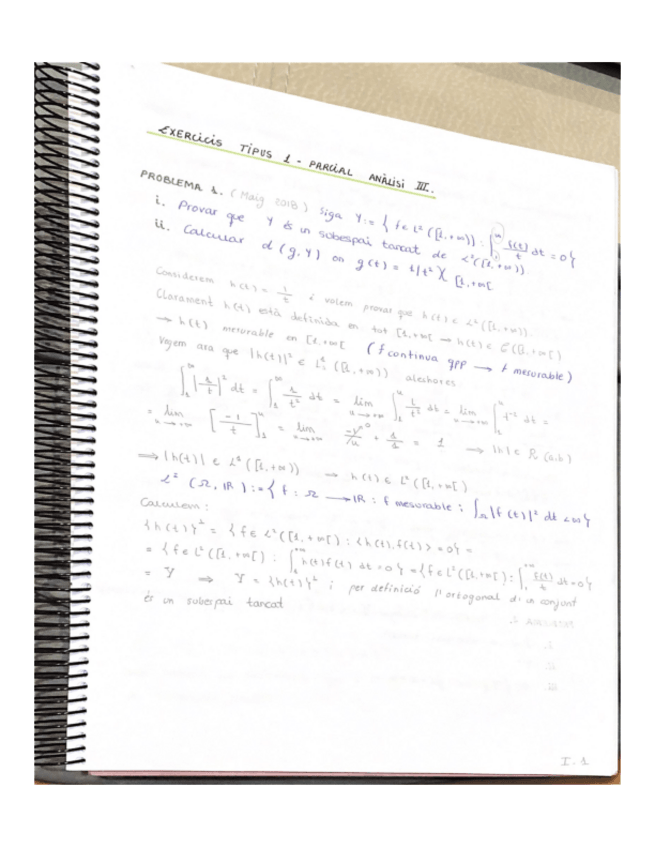 EXERCICIS TIPUS 1 - PARCIAL ANÀLISI III.
PROBLEMA 1. (Maig 2018) Siga Y := { f ∈ L²([1,+∞)) : ∫₁^∞ f(t)/t dt = 0 }
i. Provar que Y és un subespai tancat de L²([1,+∞)).
ii. Calcular d(g,Y) on g(t) = 1/t² χ [1,+∞[
Considerem h(t) = 1/t i volem provar que h(t) ∈ L²([1,+∞)).
Clarament h(t) està definida en tot [1,+∞[ → h(t) ∈ C([1,+∞[)
→ h(t) mesurable en [1,+∞[ (f contínua qpp → f mesurable)
Vejem ara que |h(t)|² ∈ L¹([1,+∞)) aleshores
∫₁^∞ |1/t|² dt = ∫₁^∞ 1/t² dt = lim u→+∞ ∫₁^u 1/t² dt = lim u→+∞ ∫₁^u t⁻² dt =
= lim u→+∞ [-1/t]₁^u = lim u→+∞ -1/u + 1/1 = 1 → |h| ∈ R(a,b)
⇒ |h(t)| ∈ L²([1,+∞)) → h(t) ∈ L²([1,+∞[)
L²(Ω, ℝ) := { f : Ω → ℝ : f mesurable ; ∫Ω |f(t)|² dt < ∞ }
Calculem :
{h(t)}⊥ = { f ∈ L²([1,+∞[) : <h(t), f(t)> = 0 } =
= { f ∈ L²([1,+∞[) : ∫₁^+∞ h(t) f(t) dt = 0 } = { f ∈ L²([1,+∞[) : ∫₁^+∞ f(t)/t dt = 0 }
= Y ⇒ Y = {h(t)}⊥ ; per definició l'ortogonal d'un conjunt
és un subespai tancat
I. 1